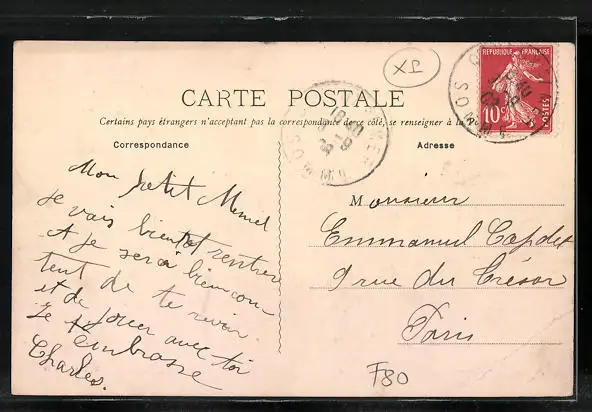 XI
REPUBLIQUE FRANÇAISE
10c
POSTES
CARTE POSTALE
Certains pays étrangers n'acceptant pas la correspondance de ce côté, se renseigner à la
Correspondance
Adresse
Mon petit Memel
je vais bientot rentrer
et je serai bien con
tent de te revoir
et de jouer avec toi
Je t'embrasse
Charles.
Monsieur
Emmanuel Capdet
9 rue du Trésor
Paris
F80